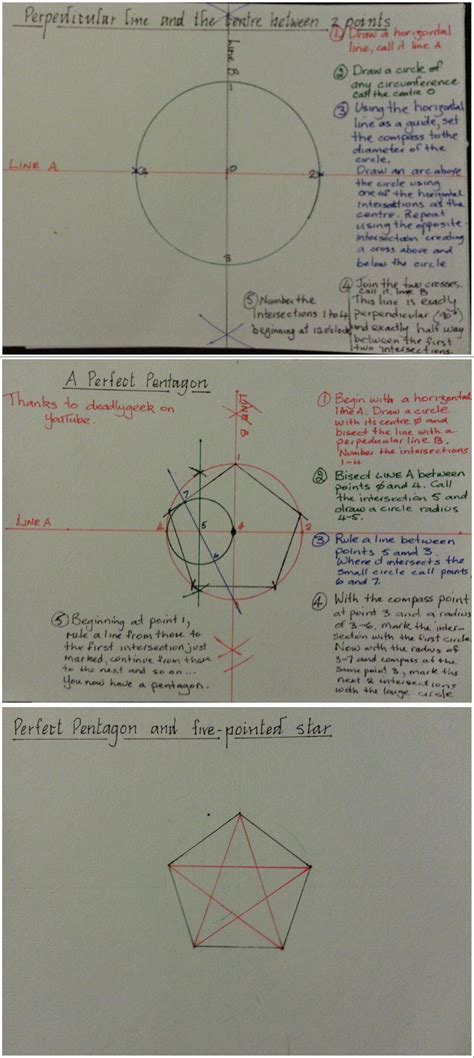 Perpendicular line and the centre between 2 points
① Draw a horizontal
line, call it line A
② Draw a circle of
any circumference
call the centre O
③ Using the horizontal
line as a guide, set
the compass to the
diameter of the
circle.
Draw an arc above
the circle using
one of the horizontal
intersections as the
centre. Repeat
using the opposite
intersection creating
a cross above and
below the circle
④ Join the two crosses.
call it line B
This line is exactly
perpendicular (90°)
and exactly half way
between the first
two intersections.
⑤ Number the
intersections 1 to 4
beginning at 12 o'clock
LINE B
1
LINE A
4
O
2
3
A Perfect Pentagon
Thanks to deadlygeek on
YouTube.
① Begin with a horizontal
line A. Draw a circle
with its centre ø and
bisect the line with a
perpendicular line B.
Number the intersections
1-4
② Bisect LINE A between
points ø and 4. Call
the intersection 5 and
draw a circle radius
4-5.
③ Rule a line between
points 5 and 3.
Where it intersects the
small circle call points
6 and 7.
④ With the compass point
at point 3 and a radius
of 3-6, mark the inter-
section with the first circle.
Now with the radius of
3-7 and compass at the
same point 3, mark the
next 2 intersections
with the large circle
⑤ Beginning at point 1,
rule a line from there to
the first intersection just
marked, continue from there
to the next and so on...
You now have a pentagon.
LINE B
1
7
LINE A
4
5
ø
2
6
3
Perfect Pentagon and five-pointed star